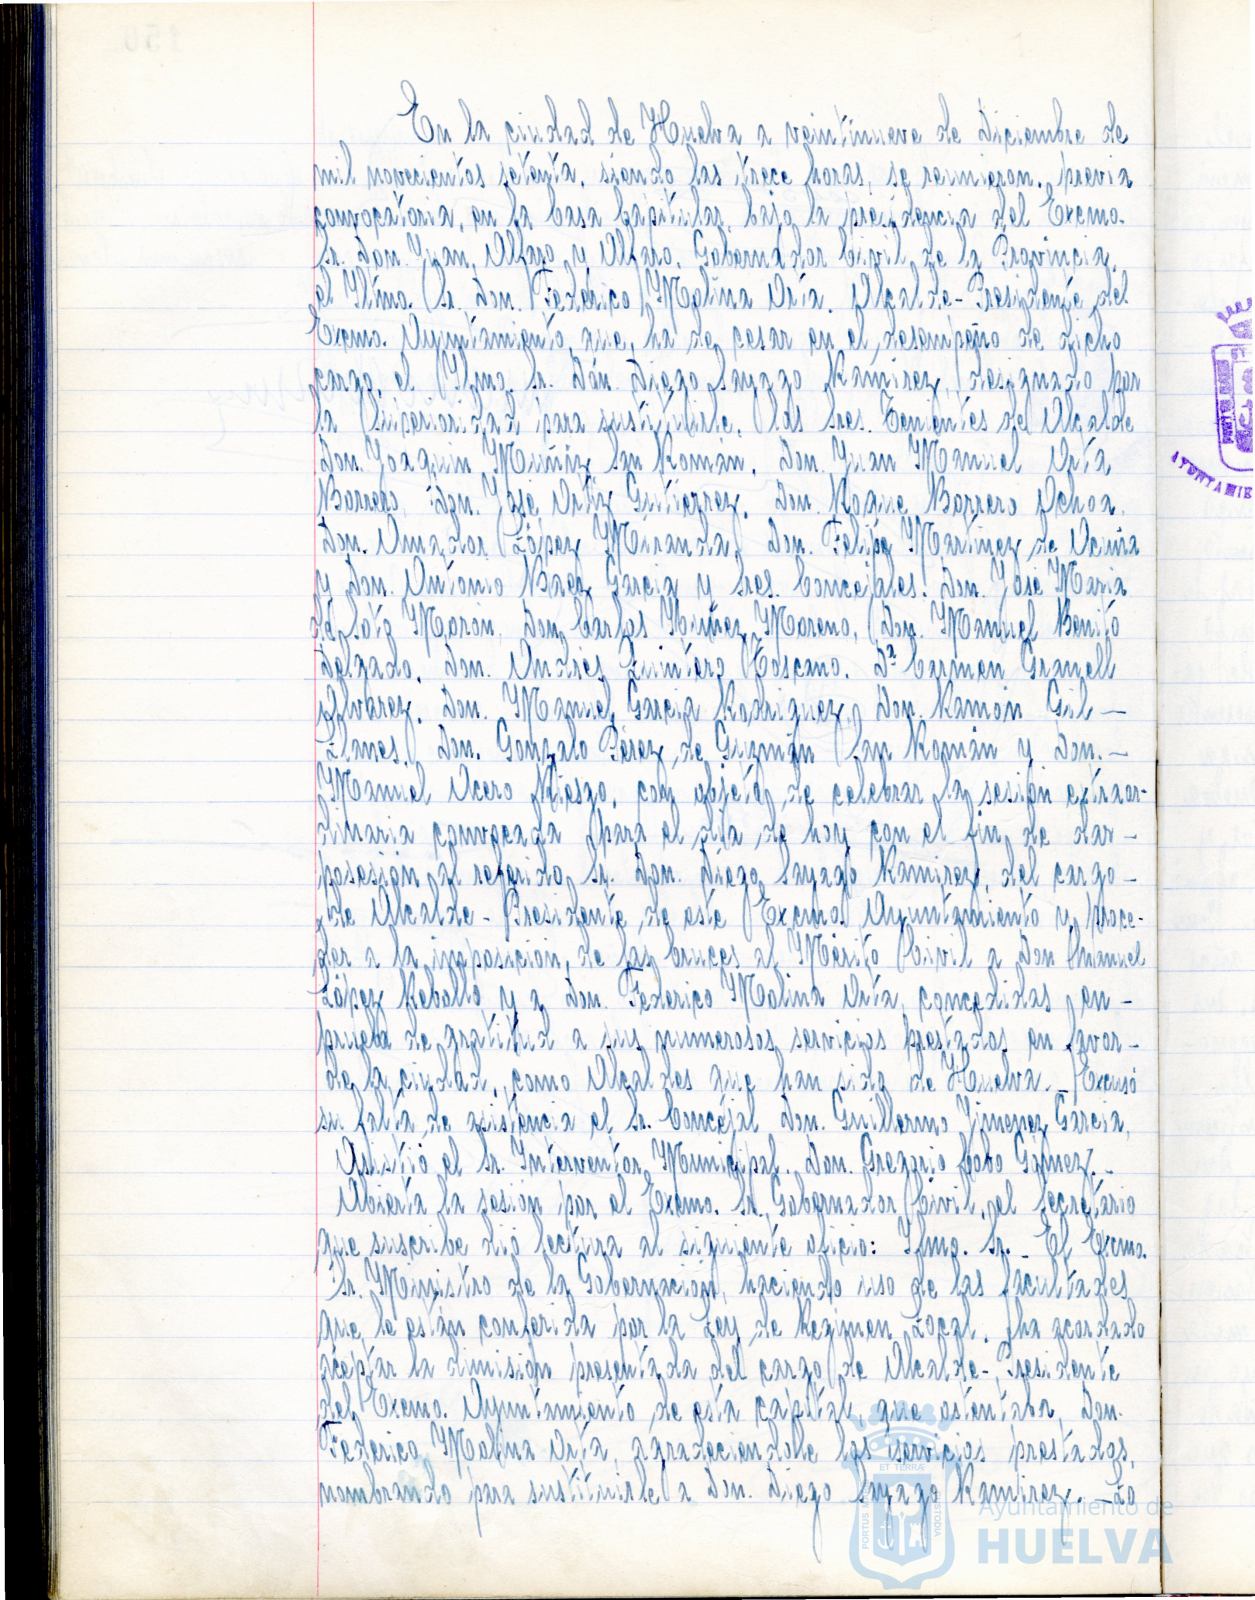 En la ciudad de Huelva a veintinueve de Diciembre de
mil novecientos setenta, siendo las trece horas, se reunieron, previa
convocatoria, en la Casa Capitular, bajo la presidencia del Excmo.
Sr. Don Juan Alfaro y Alfaro, Gobernador Civil de la Provincia,
el Iltmo. Sr. Don Federico Molina Orta, Alcalde-Presidente del
Excmo. Ayuntamiento, que ha de cesar en el desempeño de dicho
cargo, el Iltmo. Sr. Don Diego Sayago Ramirez, designado por
la Superioridad para sustituirle, los Sres. Tenientes de Alcalde
Don Joaquin Muñiz San Román, Don Juan Manuel Orta
Borrero, Don José Ortiz Gutierrez, Don Roque Barrero Ochoa,
Don Amador López Miranda, Don Felipe Martinez de Acuña
y Don Antonio Baez Garcia y Sres. Concejales: Don José Maria
de Soto Morón, Don Carlos Nuñez Moreno, Don Manuel Benito
Delgado, Don Andrés Quintero Toscano, Dª Carmen Granell
Alvarez, Don Manuel Garcia Rodriguez, Don Ramón Gil —
Llanes, Don Gonzalo Pérez de Guzmán San Román y Don. —
Manuel Acero Riesgo, con objeto de celebrar la sesión extraor-
dinaria convocada para el dia de hoy con el fin de dar —
posesión al referido Sr. Don Diego Sayago Ramirez, del cargo —
de Alcalde - Presidente de este Excmo. Ayuntamiento y proce-
der a la imposición de las Cruces al Mérito Civil a Don Manuel
López Rebollo y a Don Federico Molina Orta, concedidas en —
prueba de gratitud a sus numerosos servicios prestados en favor —
de la ciudad, como Alcaldes que han sido de Huelva. _ Excusó
su falta de asistencia el Sr. Concejal Don Guillermo Jimenez Garcia.
Asistió el Sr. Interventor Municipal, Don Gregorio Cobo Gómez. _
Abierta la sesión por el Excmo. Sr. Gobernador Civil, el Secretario
que suscribe dió lectura al siguiente oficio: Iltmo. Sr. _ El Excmo.
Sr. Ministro de la Gobernación, haciendo uso de las facultades
que le están conferida por la Ley de Régimen Local, ha acordado
aceptar la dimisión presentada del cargo de Alcalde-Presidente
del Excmo. Ayuntamiento de esta capital que ostentaba, Don
Federico Molina Orta, agradeciendole los servicios prestados,
nombrando para sustituirle a Don Diego Sayago Ramirez. _ Lo
Ayuntamiento de
HUELVA